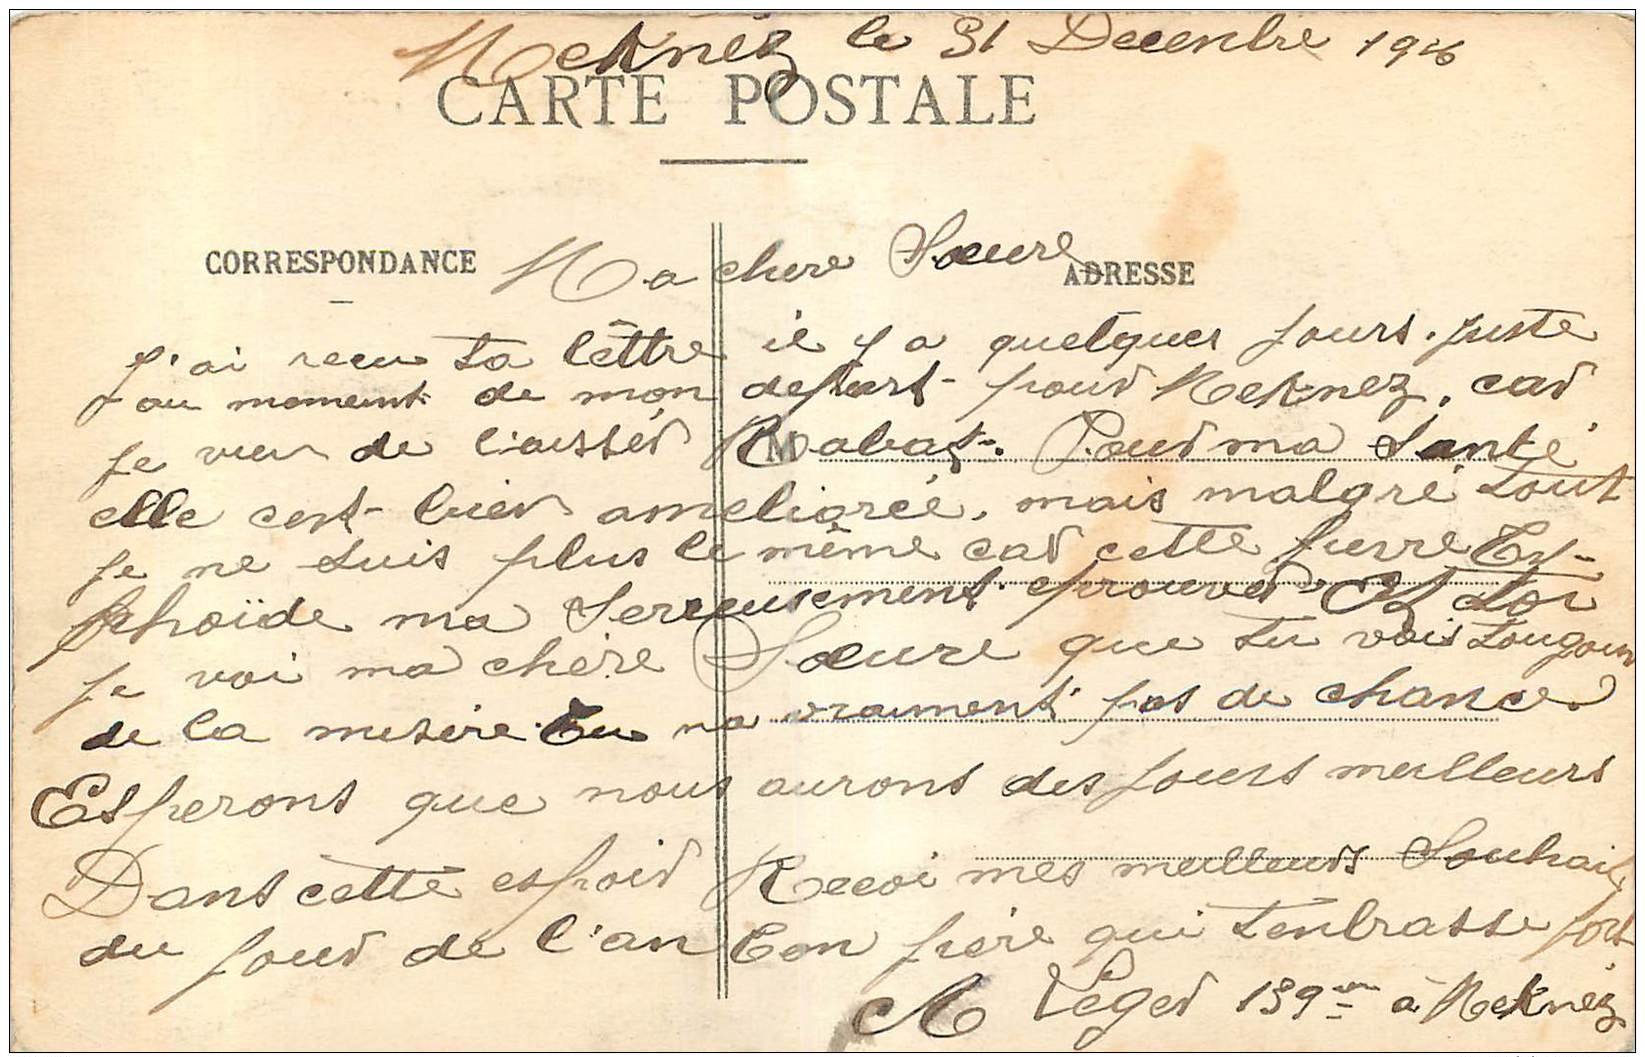 Meknéz le 31 Decenbre 1926
CARTE POSTALE
CORRESPONDANCE
ADRESSE
Ma chere Soeure
J'ai recu ta lêttre il y a quelques jours. juste
au moment de mon depart pour Meknez. car
je vien de l'aisser Rabat. Pour ma Santé
elle cest bien ameliorée, mais malgré tout
je ne suis plus le même car cette fievre Ty-
phoïde ma Serieusement eprouver. Et toi
je voi ma chére Soeure que tu vois tougours
de la misère Tu na vraiment pas de chance.
Esperons que nous aurons des jours meilleurs
Dans cette espoir Recoi mes meilleurs Souhait
du jour de l'an Ton frére qui t'enbrasse fort
Leger à Meknéz